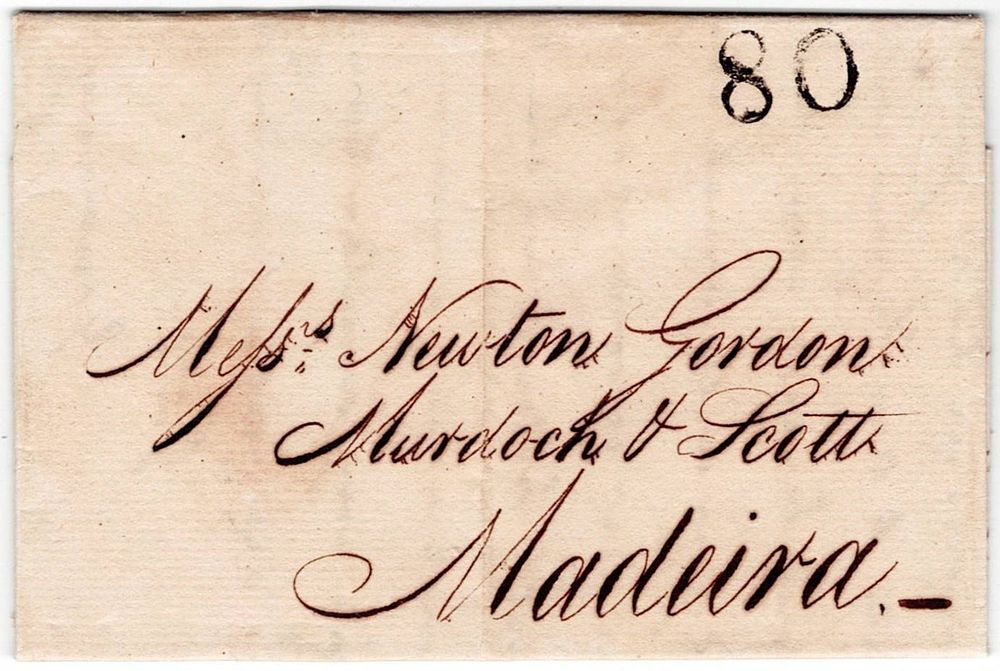 80
Messrs. Newton Gordon
Murdoch & Scott
Madeira. —